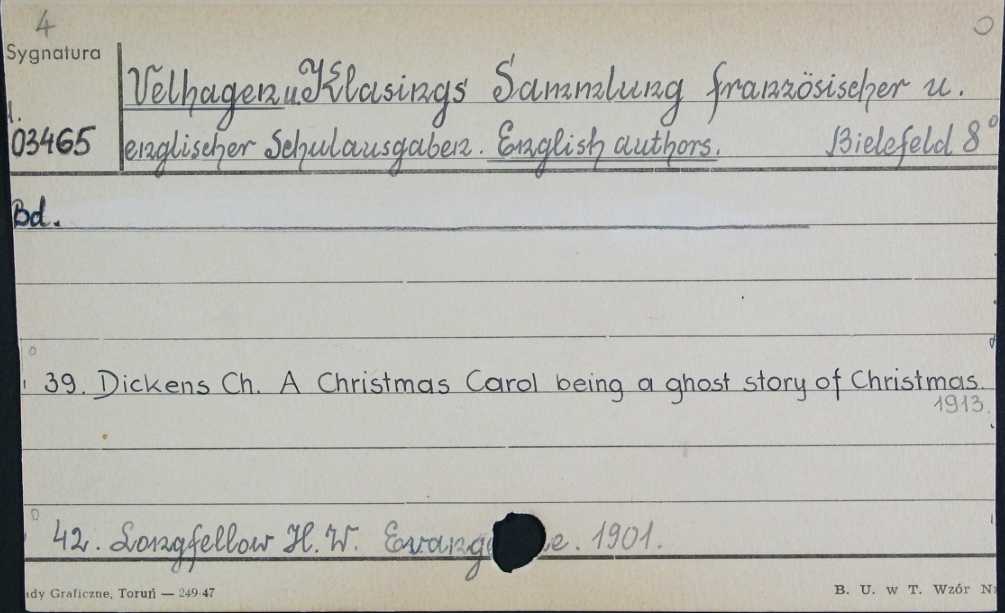 4
Sygnatura
03465
Velhagen u. Klasings Sammlung französischer u.
englischer Schulausgaben. English authors. Bielefeld 8°
Bd.
39. Dickens Ch. A Christmas Carol being a ghost story of Christmas.
1913.
42. Longfellow H. W. 1901.
Graficzne, Toruń — 249 47
B. U. w T. Wzór